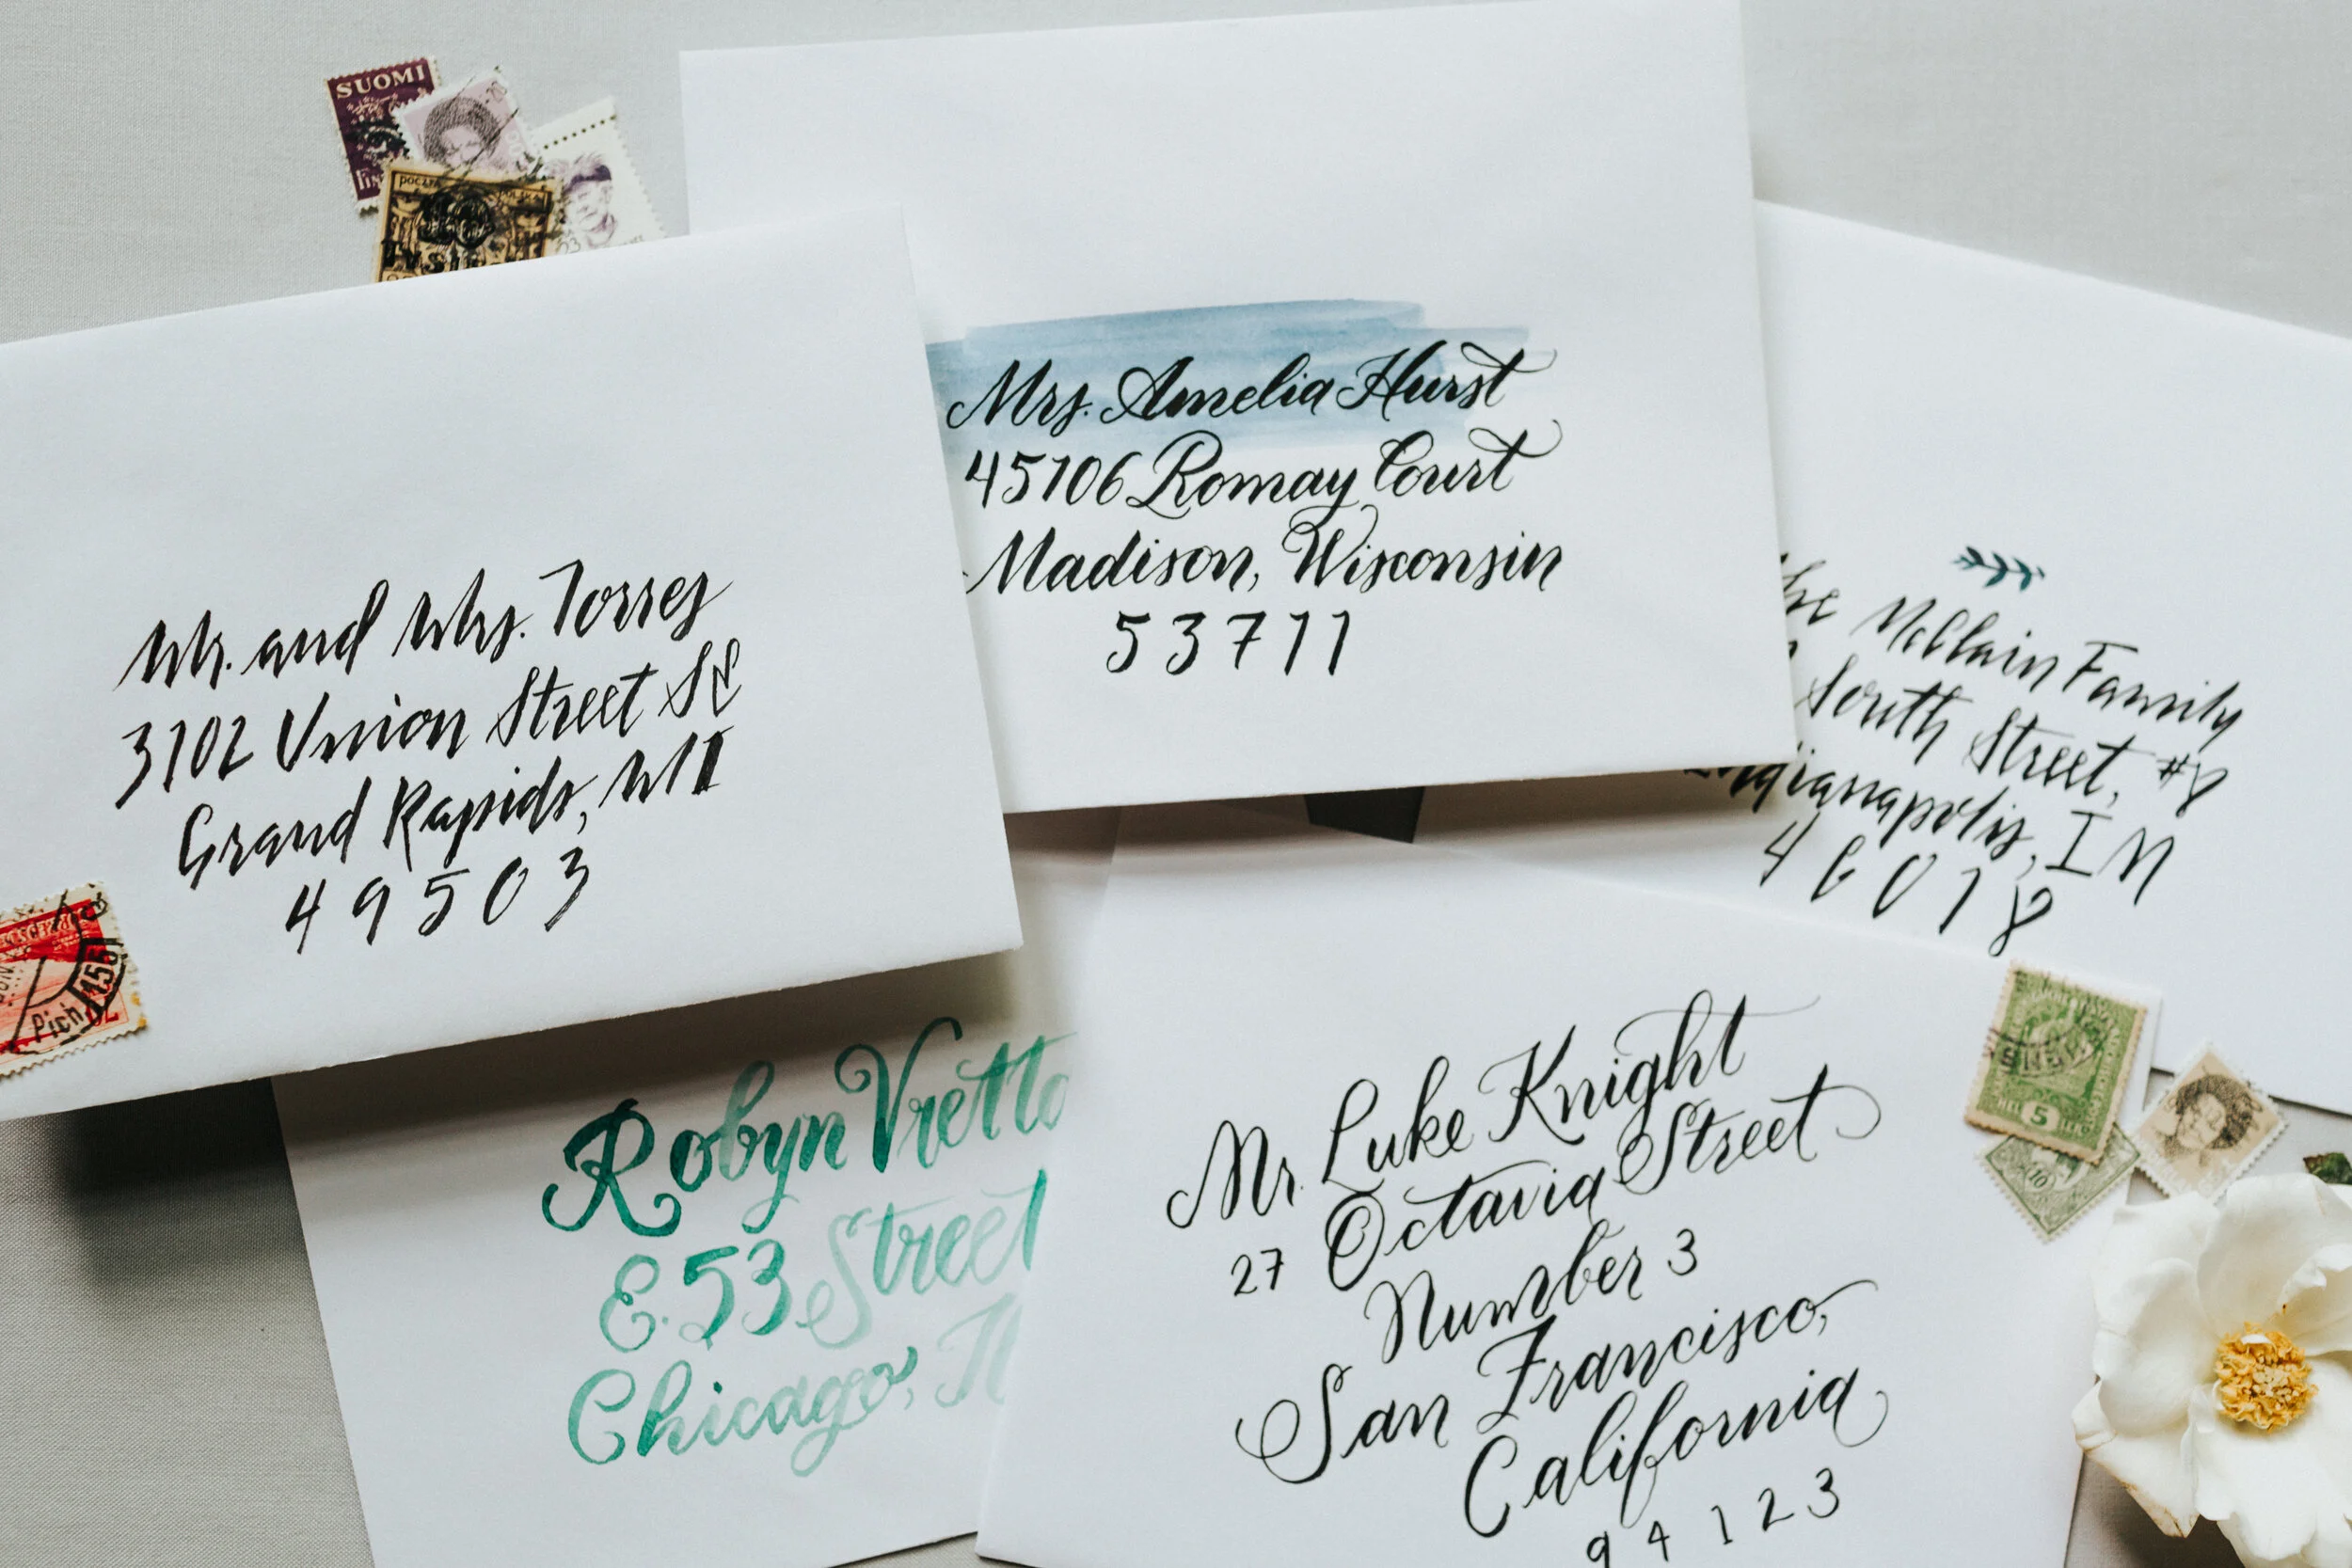 SUOMI
POCZTA POLSKA
53
Mr. and Mrs. Torres
3102 Union Street SE
Grand Rapids, MI
49503
Mrs. Amelia Hurst
45106 Romay Court
Madison, Wisconsin
53711
The McClain Family
South Street, #8
Indianapolis, IN
46018
Robyn Vretto
E. 53 Street
Chicago, Il
Mr. Luke Knight
27 Octavia Street
Number 3
San Francisco,
California
94123
5
10